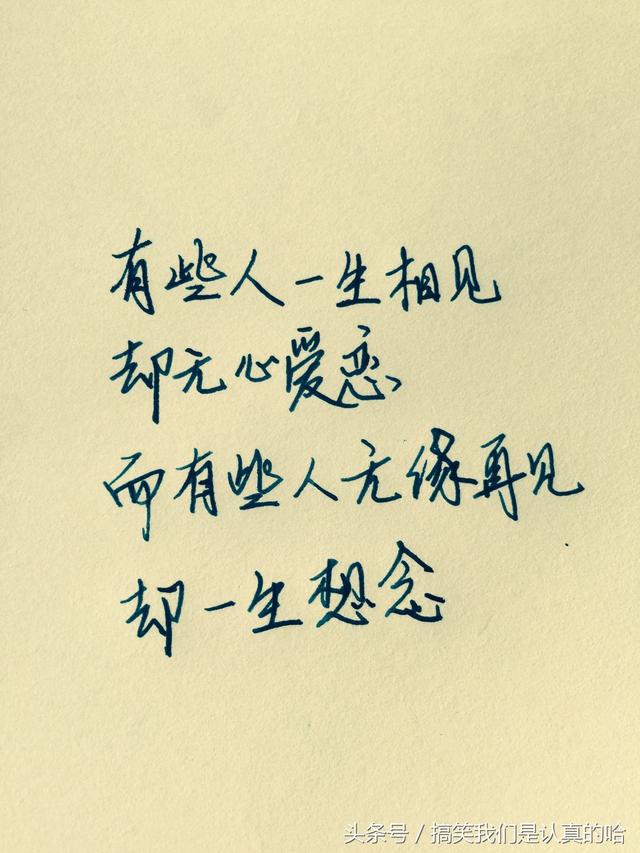 有些人一生相见
却无心爱恋
而有些人无缘再见
却一生想念
头条号 / 搞笑我们是认真的哈